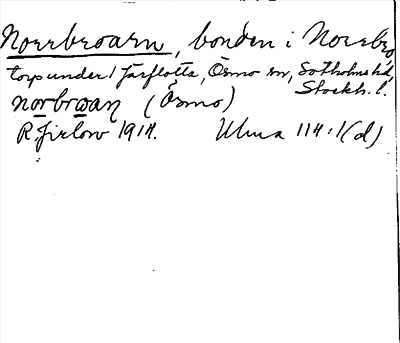 Norrbroarn, bonden i Norrbro
torp under Järflotta, Ösmo sn, Sotholms hd,
Stockh. l.
norbroaɳ (Ösmo)
R. Jirlow 1914. Ulma 114:1(d)